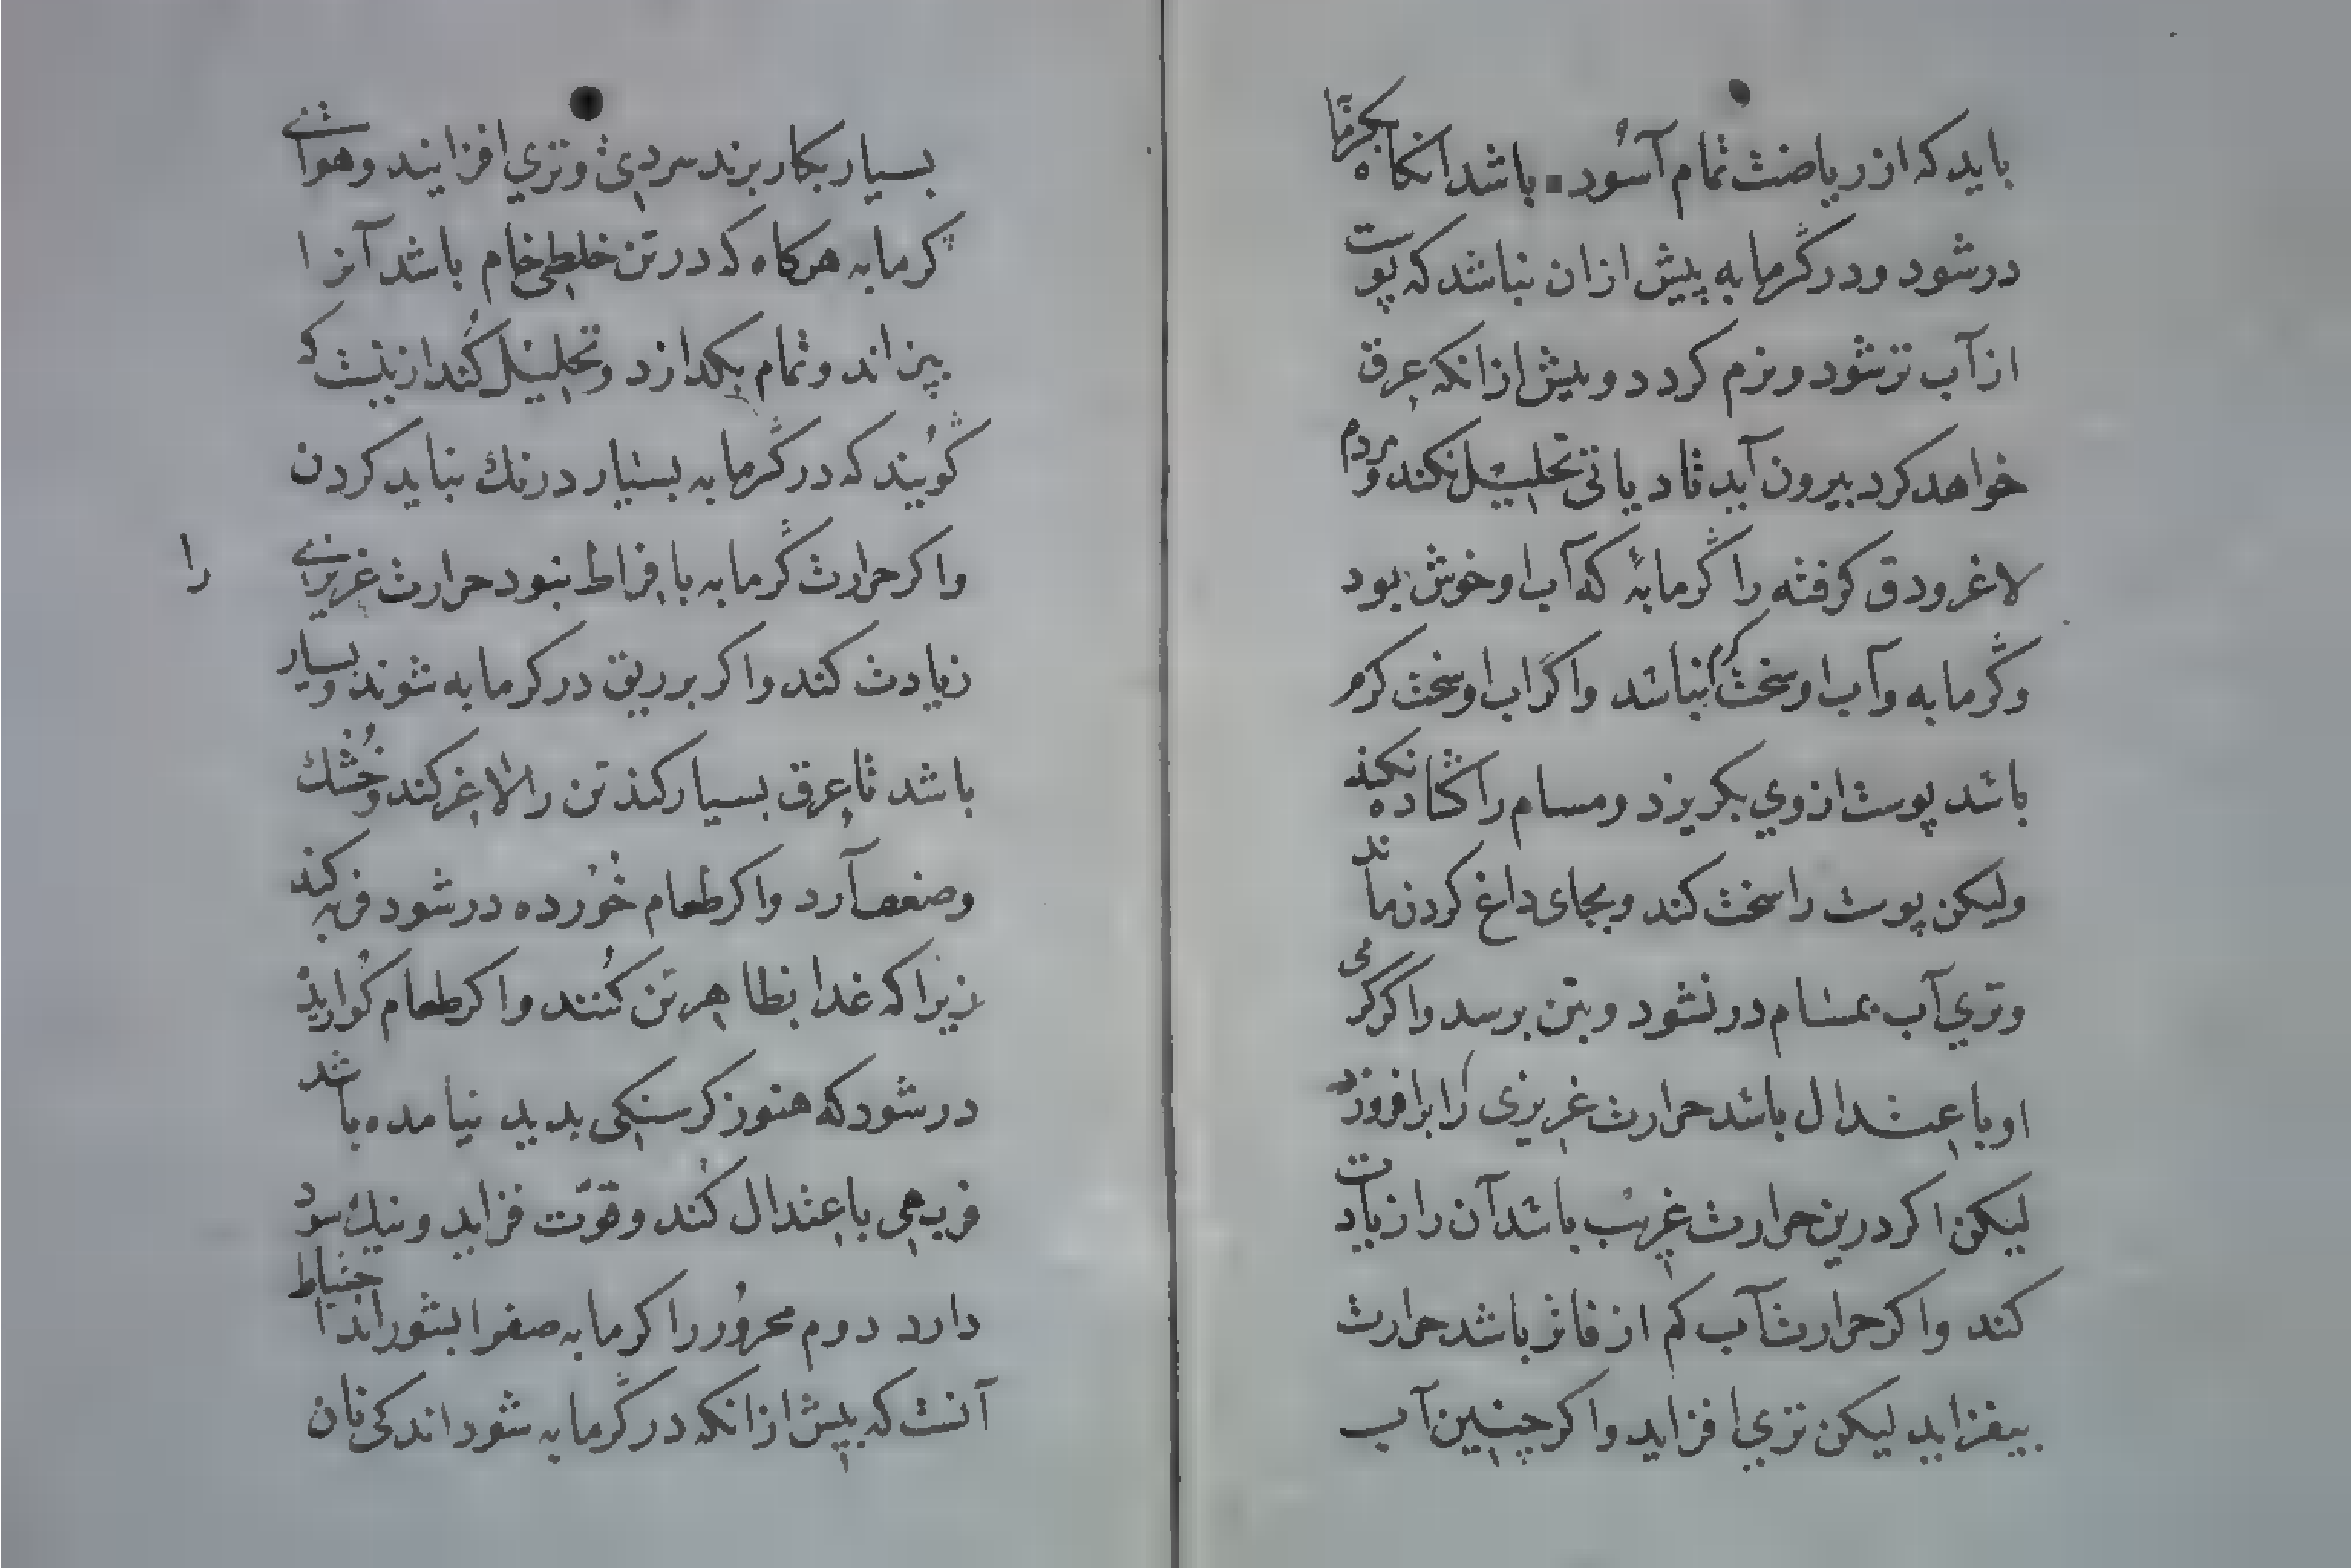 باید که از ریاضت تمام آسود باشد انکاه بکرما
درشود ودر گرمابه پیش ازان نباشد که پوست
از آب ترشود ونرم کردد وپیش ازانکه عرق
خواهد کرد بیرون آید تا دیاتی تحلیل نکند ومردم
لاغر ودق کرفته را گرمابهٔ که آب او خوش بود
وگرمابه وآب او سخت کرم نباشد واگر اب او سخت کرم
باشد پوست ازوي بکریزد ومسام را گشاده نکند
ولیکن پوست را سخت کند وبجای داغ کردن ماند
وتري آب بمسام درنشود وبتن برسد واگر گرمی
او باعتدال باشد حرارت غریزی را برافروزد
لیکن اکر درین حرارت غریب باشد آن را زیادت
کند واکر حرارت آب کم از فاتر باشد حرارت
بیفزاید لیکن تري افزاید واکر چنین آب
بسیار بکار برند سردیٔ وتري افزایند وهواشی
گرمابه هرکاه که در تن خلطی خام باشد آنرا
بپزاند وتمام بکدازد وتحلیل کُند ازینست که
گویند که در گرمابه بسیار درنك نباید کردن
واکر حرارت گرمابه با فراط نبود حرارت غریزی را
زیادت کند واکر بر ریق در کرمابه شوند وبسیار
باشد تا عرق بسیار کند تن را لاغر کند وخُشك
وضعف آرد واکر طعام خورده درشود فربه کند
زیرا که غدا بظاهر تن کُنند واکر طعام کُوارید
درشود که هنوز کرسنکی بدید نیامده باشد
فربهی باعتدال کُند وقوّت فزاید ونیك سود
دارد دوم محرور را کرمابه صفرا بشوراند احتیاط
آنست که پیش ازانکه در گرمابه شود اندکی نان